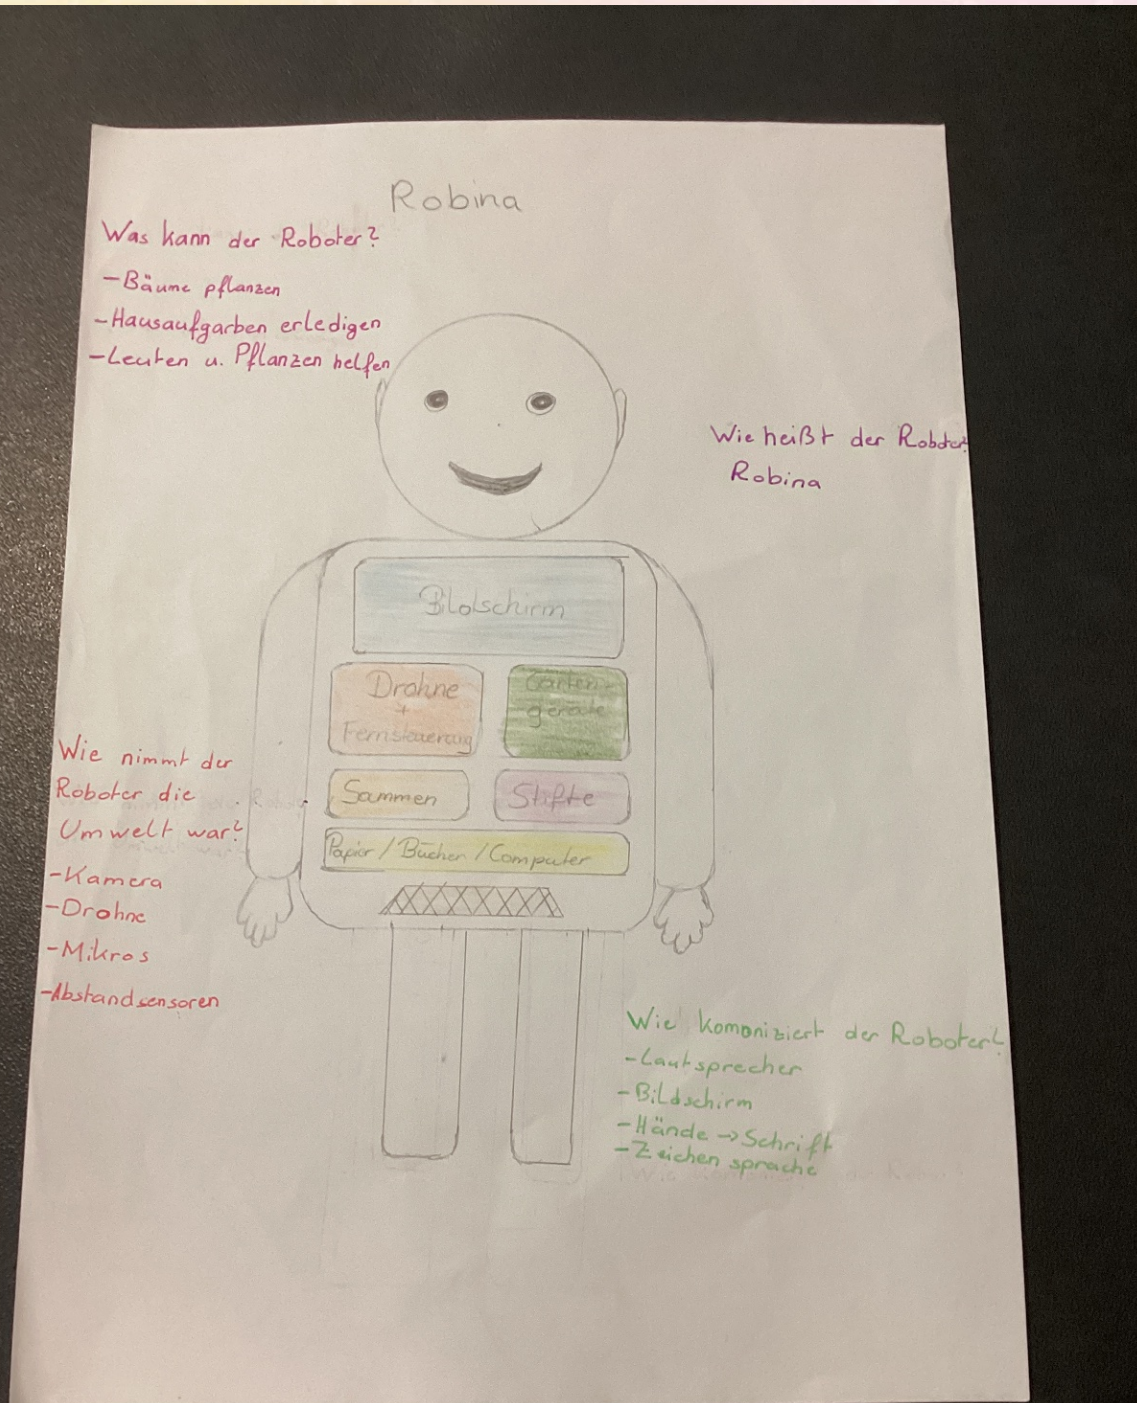 Robina
Was kann der Roboter?
-Bäume pflanzen
-Hausaufgarben erledigen
-Leuten u. Pflanzen helfen
Wie heißt der Roboter?
Robina
Bildschirm
Drohne
+
Fernsteuerung
Garten-
geräte
Sammen
Stifte
Papier/Bücher/Computer
Wie nimmt der
Roboter die
Umwelt war?
-Kamera
-Drohne
-Mikros
-Abstandsensoren
Wie komoniziert der Roboter?
-Lautsprecher
-Bildschirm
-Hände → Schrift
-Zeichen sprache